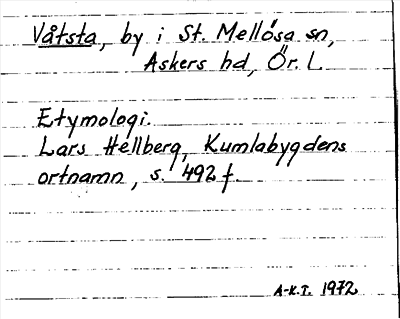 Våtsta, by i St. Mellösa sn,
Askers hd, Ör. L.
Etymologi.
Lars Hellberg, Kumlabygdens
ortnamn, s. 492 f.
A-K.T. 1972